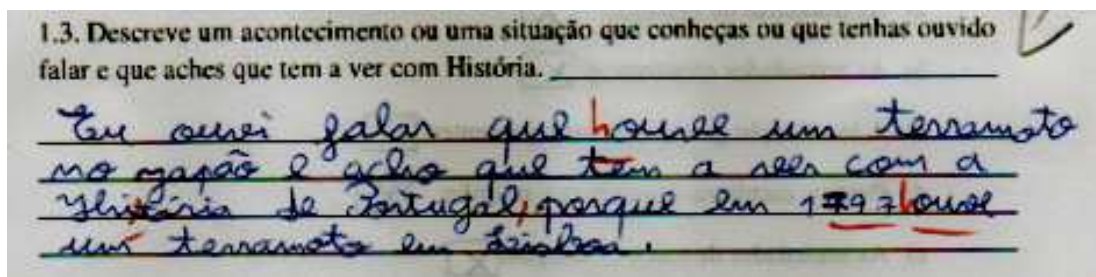 1.3. Descreve um acontecimento ou uma situação que conheças ou que tenhas ouvido
falar e que aches que tem a ver com História.
Eu ouvi falar que houve um terramoto
no Japão e acho que tem a ver com a
História de Portugal, porque em 1797 houve
um terramoto em Lisboa.